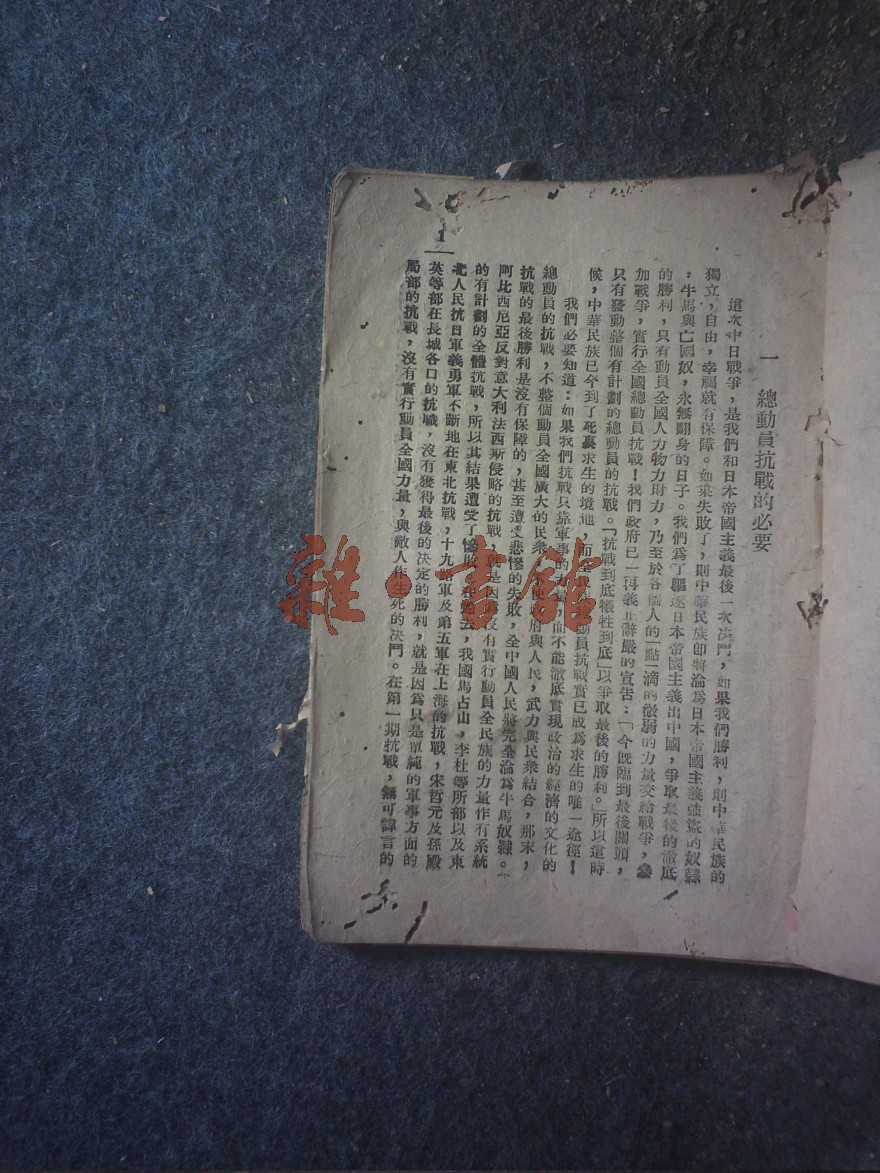 一　總動員抗戰的必要
這次中日戰爭，是我們和日本帝國主義最後一次決鬥，如果我們勝利，則中華民族的
獨立，自由，幸福就有保障。如果失敗了，則中華民族即將淪爲日本帝國主義强盜的奴隸
，牛馬與亡國奴，永無翻身的日子。我們爲了驅逐日本帝國主義出中國，爭取最後的澈底
的勝利，只有動員全國人力物力財力，乃至於各個人的一點一滴的微弱的力量交給戰爭，參
加戰爭，實行全國總動員抗戰！我們政府已一再義正辭嚴的宣告：「今旣臨到最後關頭，
只有發動整個有計劃的總動員的抗戰。「抗戰到底犧牲到底」以爭取最後的勝利。」所以這時
候，中華民族已今到了死裏求生的境地，而全我動員抗戰實已成爲求生的唯一途徑！
我們必要知道：如果我們抗戰只靠軍事的而不能澈底實現政治的經濟的文化的
總動員的抗戰，不整個動員全國廣大的民衆使政府與人民，武力與民衆結合，那末，
抗戰的最後勝利是沒有保障的，甚至遭受悲慘的失敗，全中國人民將完全淪爲牛馬奴隸。
阿比西尼亞反對意大利法西斯侵略的抗戰，就是因爲沒有實行動員全民族的力量作有系統
的有計劃的全體抗戰，所以其結果遭受了慘敗。在過去，我國馬占山，李杜等所部以及東
北人民抗日軍義勇軍不斷地在東北抗戰，十九軍及第五軍在上海的抗戰，宋哲元及孫殿
英等部在長城各口的抗戰，沒有獲得最後的決定的勝利，就是因爲只是單純的軍事方面的
局部的抗戰，沒有實行動員全國力量，與敵人作生死的決鬥。在第一期抗戰，無可諱言的
1
雜·書館